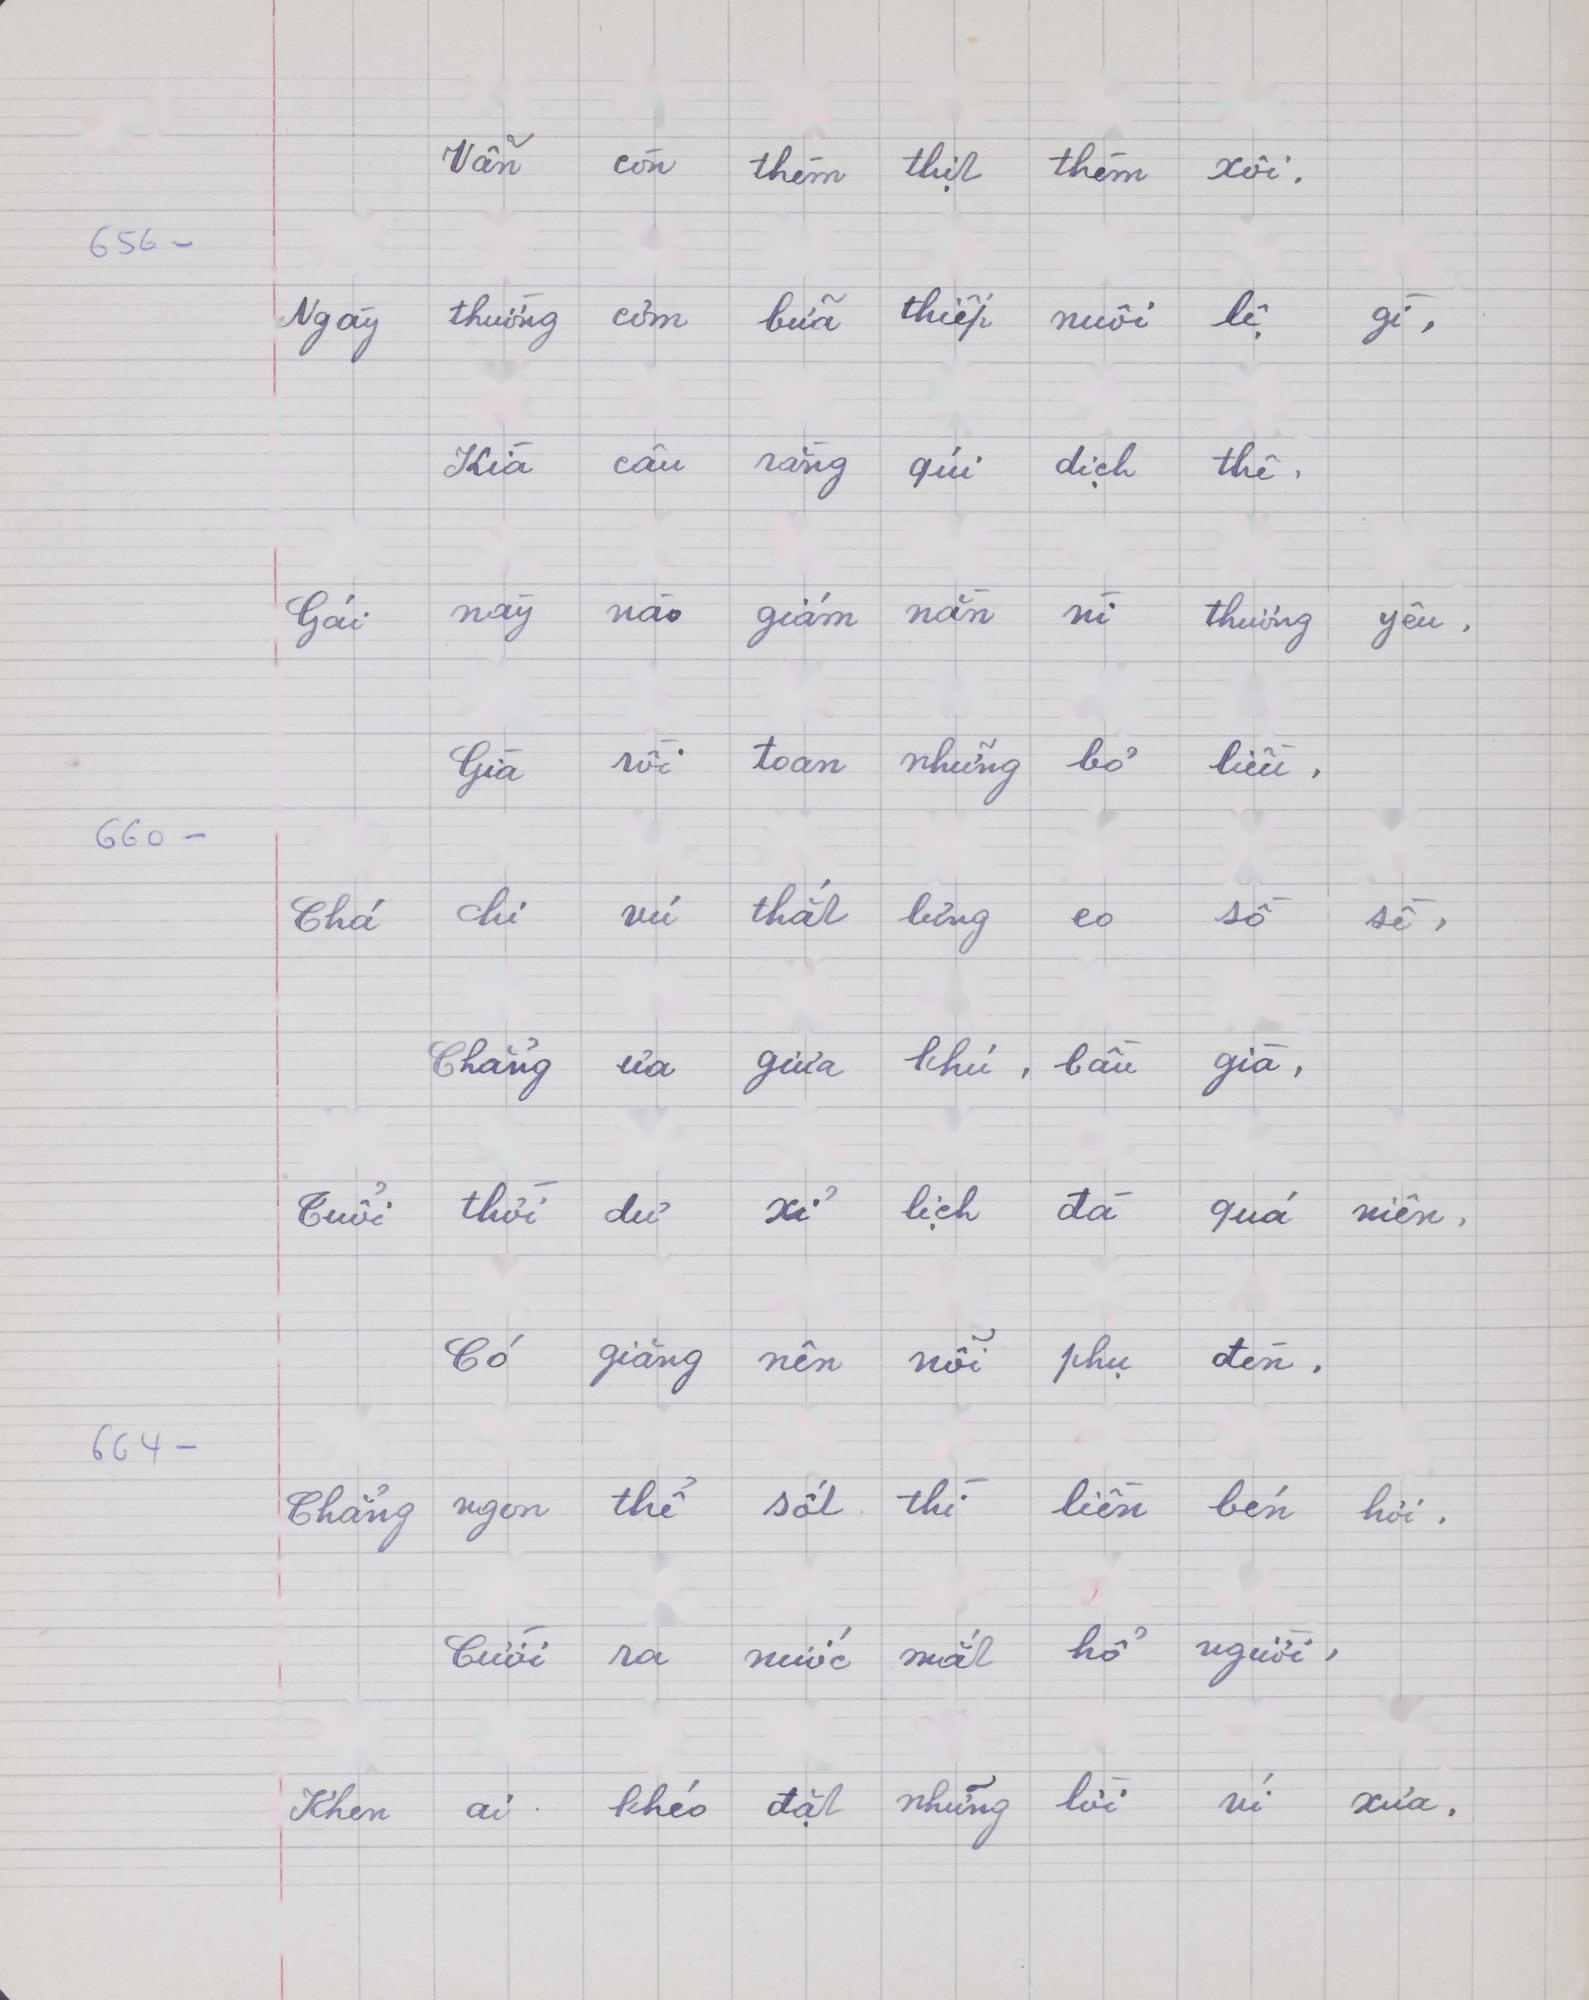 Vẫn còn thèm thịt thèm xôi.
656 -
Ngày thường cơm bữa thiếp nuôi lệ gì,
Kìa câu rằng quí dịch thê,
Gái này nào giám nằn nì thương yêu.
Già rồi toan những bỏ liều,
660 -
Chá chi vú thắt lưng eo sồ sề,
Chẳng ưa giưa khú, bầu già,
Tuổi thời dư xỉ lịch đà quá niên,
Có giăng nên nỗi phụ đèn.
664 -
Chẳng ngon thể sốt thì liền bén hơi.
Cười ra nước mắt hổ người,
Khen ai khéo đặt những lời ví xưa.